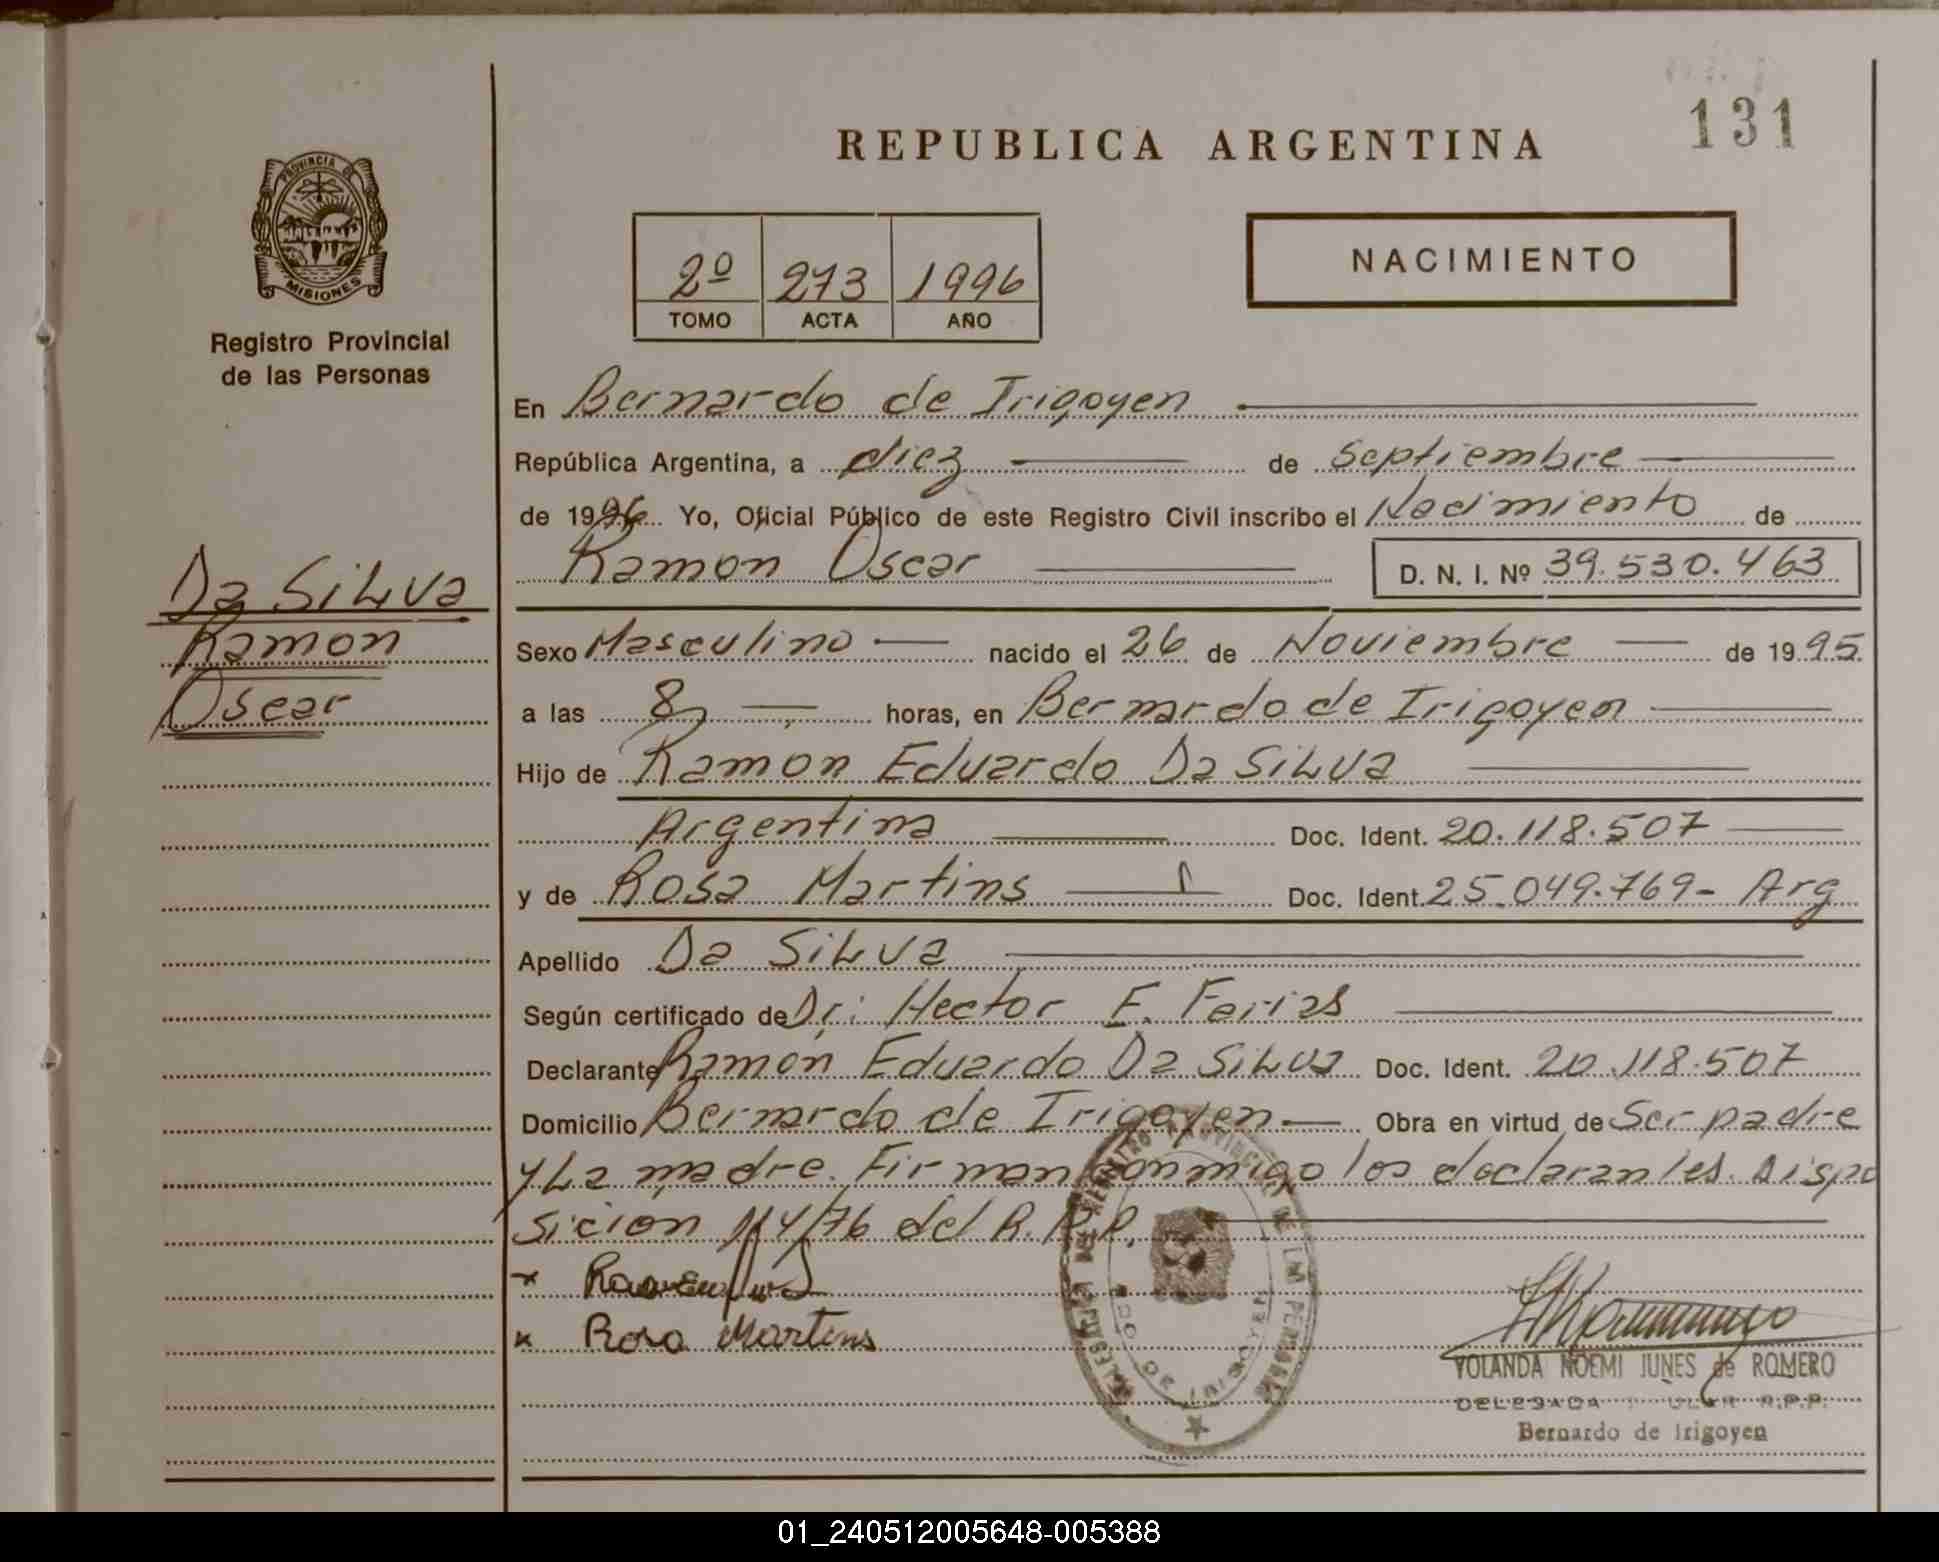 131
REPUBLICA ARGENTINA
PROVINCIA DE
MISIONES
Registro Provincial
de las Personas
NACIMIENTO
2º 273 1996
TOMO ACTA AÑO
En Bernardo de Irigoyen
República Argentina, a diez de Septiembre
de 1996 Yo, Oficial Público de este Registro Civil inscribo el Nacimiento de
Ramon Oscar D. N. I. Nº 39.530.463
Da SiLva
Ramon
Oscar
Sexo Masculino nacido el 26 de Noviembre de 1995
a las 8 horas, en Bernardo de Irigoyen
Hijo de Ramón Eduardo Da SiLva
Argentina Doc. Ident. 20.118.507
y de Rosa Martins Doc. Ident. 25.049.769- Arg
Apellido Da SiLva
Según certificado de Dr: Hector F. Farias
Declarante Ramón Eduardo Da SiLva Doc. Ident. 20.118.507
Domicilio Bernardo de Irigoyen Obra en virtud de Ser padre
y La madre. Firman conmigo los declarantes. Dispo
sicion Nº 4/76 del R.P.P.
Rosa Martins
YOLANDA NOEMI JUNES de ROMERO
DELEGADA R.P.P.
Bernardo de Irigoyen
01_240512005648-005388